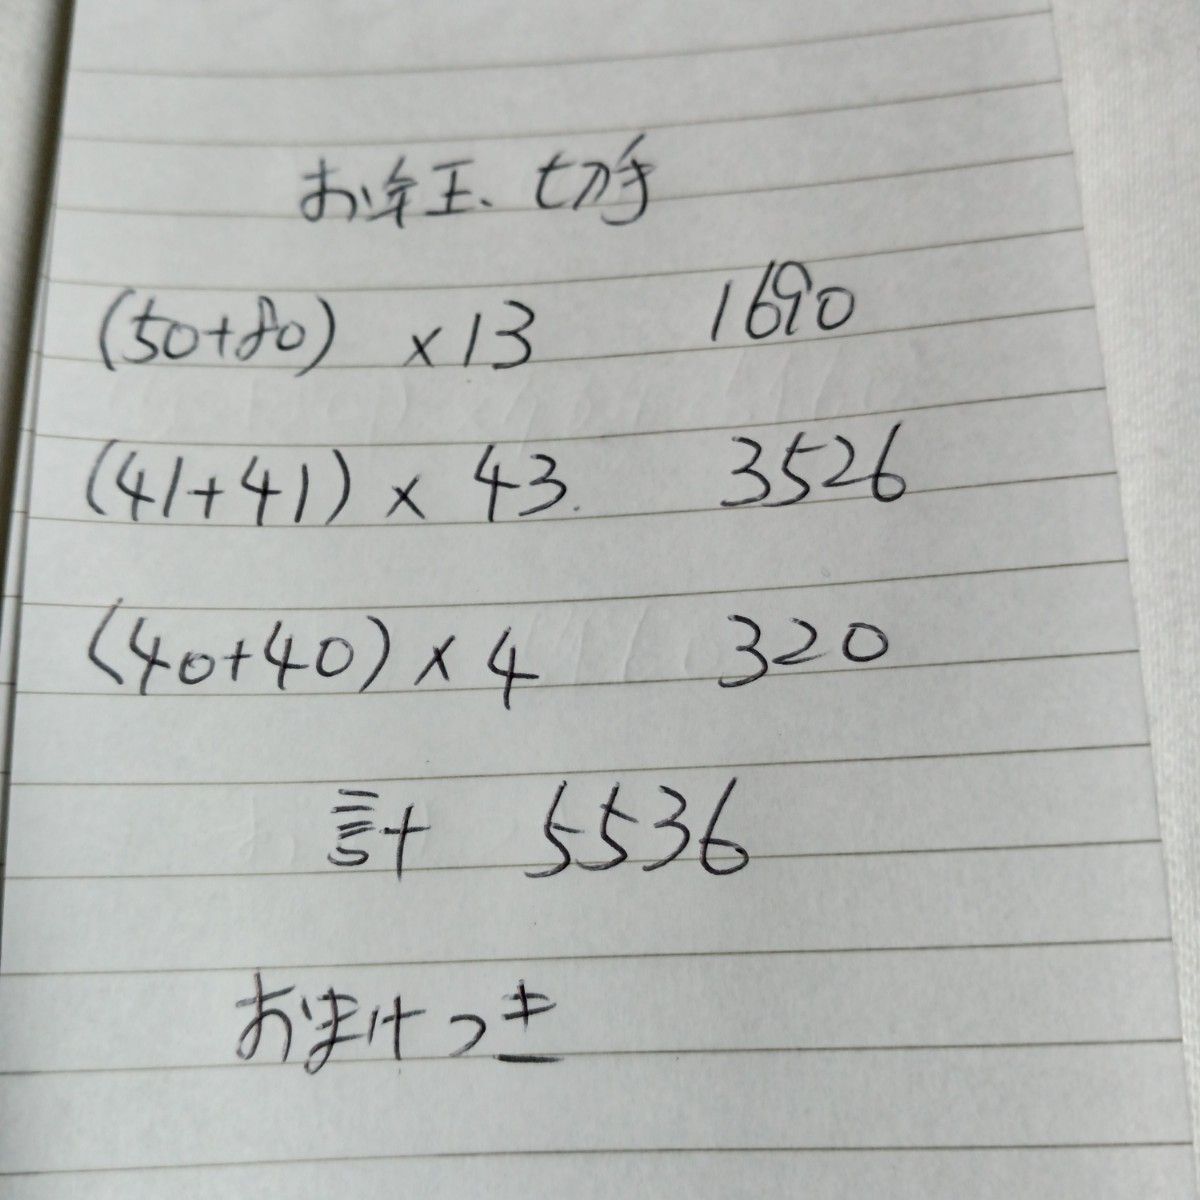 お年玉、切手
(50+80) ×13 1690
(41+41) × 43. 3526
(40+40) × 4 320
計 5536
おまけつき